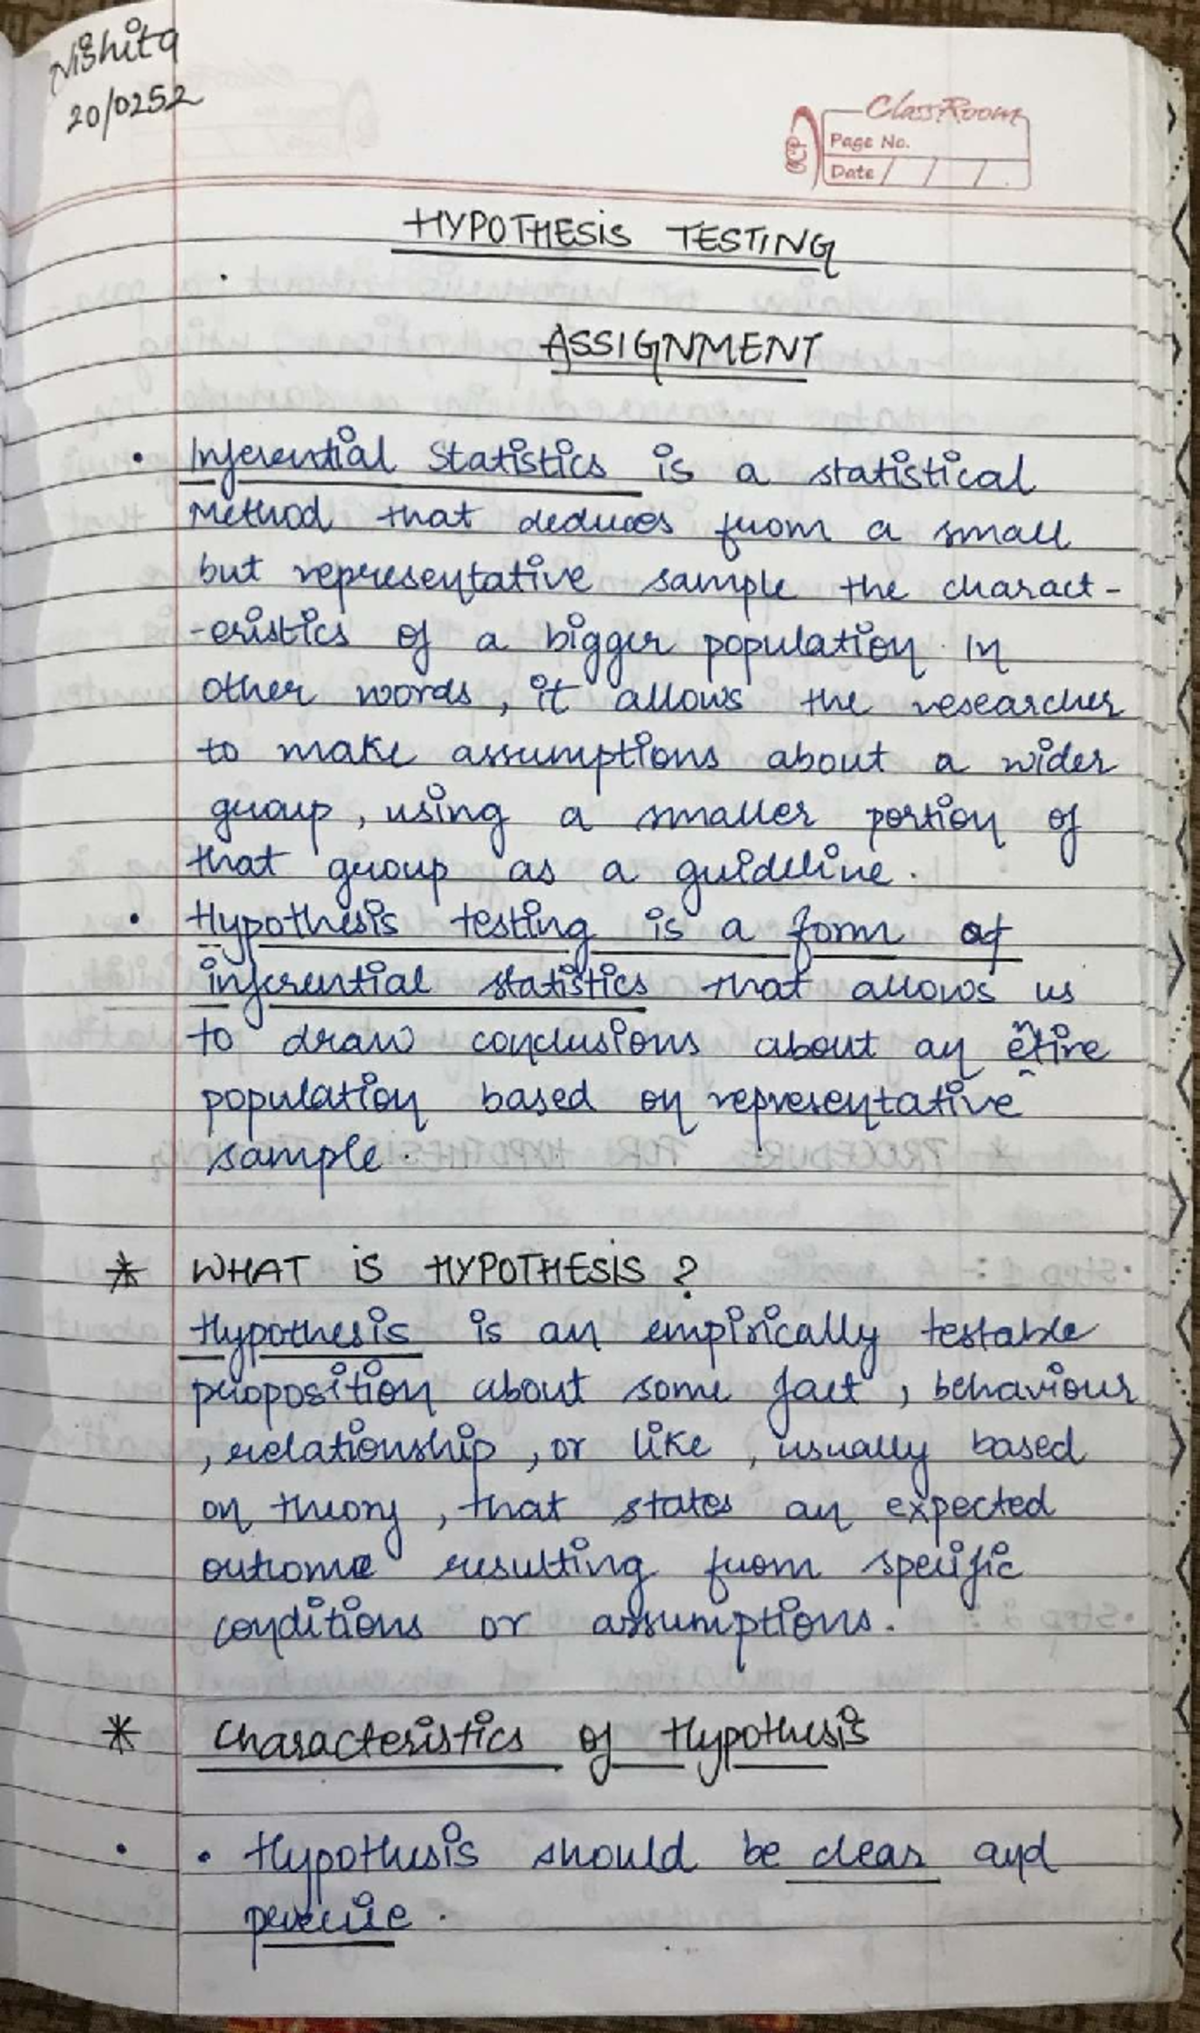 Nishita
20/0252
ClassRoom
Page No.
Date / / /
HYPOTHESIS TESTING
ASSIGNMENT
• Inferential Statistics is a statistical
Method that deduces from a small
but representative sample the charact-
-eristics of a bigger population. In
other words, it allows the researcher
to make assumptions about a wider
group, using a smaller portion of
that group as a guideline.
• Hypothesis testing is a form of
inferential statistics that allows us
to draw conclusions about an entire
population based on representative
sample.
* WHAT IS HYPOTHESIS ?
Hypothesis is an empirically testable
proposition about some fact, behaviour
, relationship, or like, usually based
on theory, that states an expected
outcome resulting from specific
conditions or assumptions.
* Characteristics of Hypothesis
• • Hypothesis should be clear and
precise.